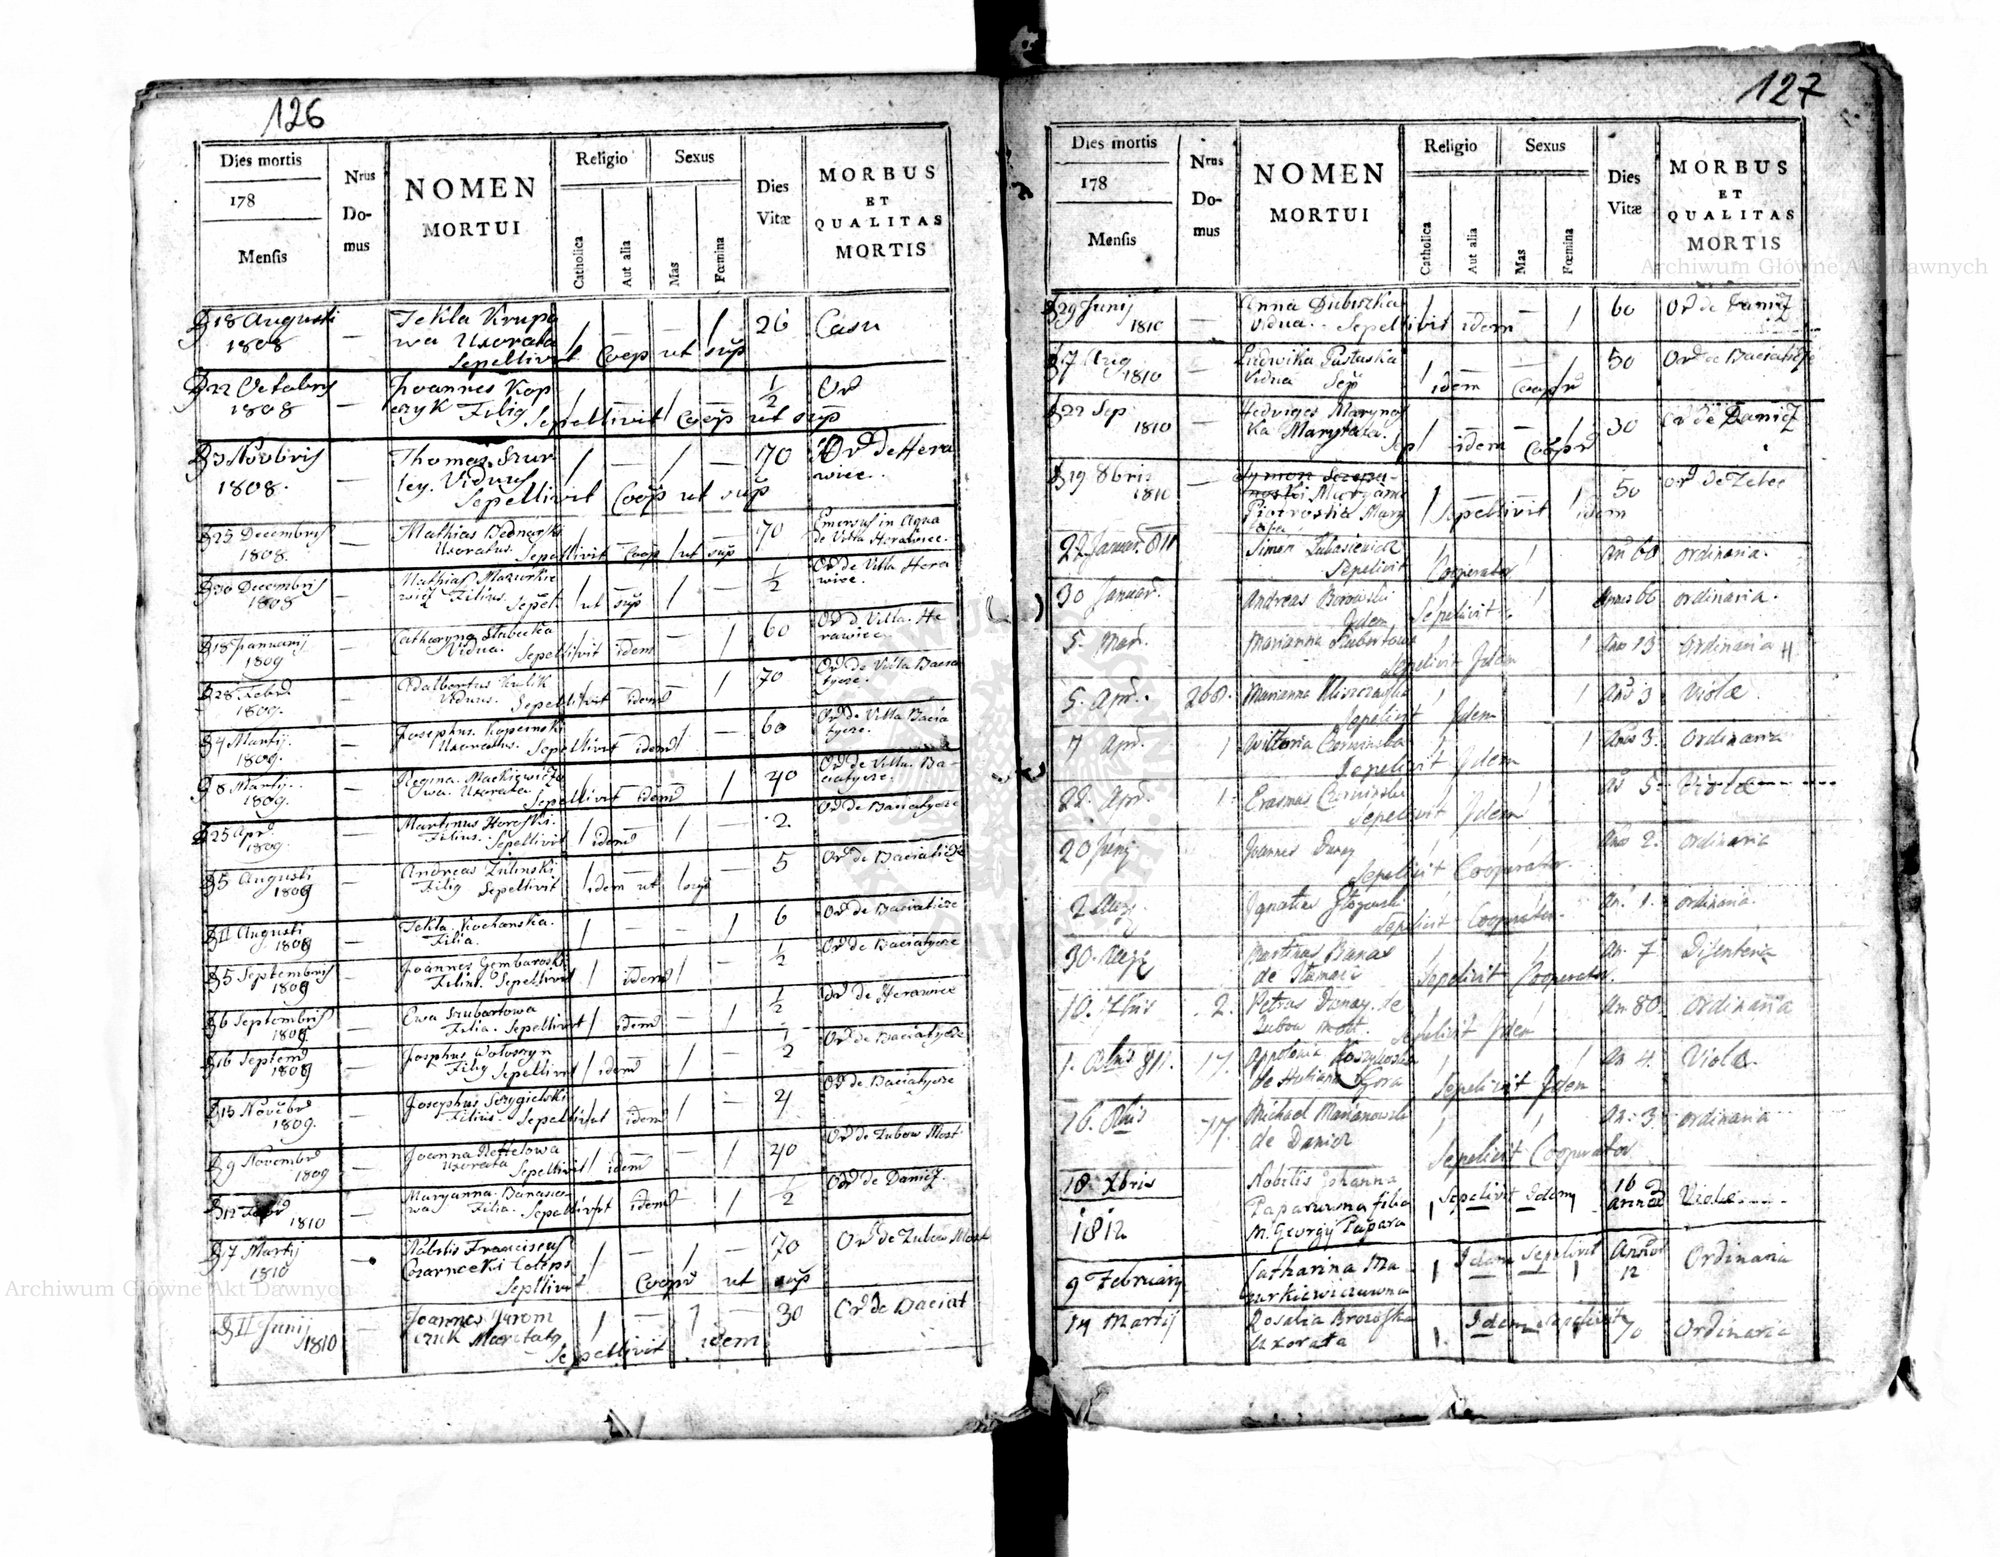 126
Dies mortis
178
Mensis
Nrus Domus
NOMEN
MORTUI
Religio
Catholica
Aut alia
Sexus
Mas
Fœmina
Dies Vitæ
MORBUS
ET
QUALITAS
MORTIS
18 Augusti 1808 — Tekla Krupowa Uxorata / — — / 26 Casu
Sepellivit Coop ut sup
22 Octobris 1808 — Joannes Kop
czyk Filig Sepellivit Coop ut sup ½ Or
3 Novbris 1808. — Thomas Szur
ley. Viduus / — / — 70 Ord de Hera
wiec.
Sepellivit Coop ut sup
25 Decembris 1808. — Mathias Bednarski
Uxoratus. Sepellivit Coop ut sup 70 Emersus in Aqua
de Villa Herawiec.
30 Decembris 1808 — Mathias Mazurkie
wicz Filius. Sepel. ut sup ½ Ord de Villa Hera
wiec.
18 Januarij 1809 — Catharyna Slabecka
Vidua. Sepellivit idem 60 Ord Villa. He
rawiec.
28 Febr 1809. — Adalbertus Kulik
Viduus. Sepellivit idem 70 Ord de Villa Bacia
tycze.
4 Martij. 1809. — Josephus Kopcinski
Uxoratus. Sepellivit idem 60 Ord de Villa Bacia
tycze.
8 Martij. 1809. — Regina Mackiewiczo
wa. Uxorata Sepellivit idem 40 Ord de Villa. Ba-
ciatycze.
25 Apr 1809. — Martinus Horoski.
Filius. Sepellivit idem 2. Ord de Baciatycze
5 Augusti 1809 — Andreas Zulinski
Filig Sepellivit idem ut sup 5 Ord de Baciaticze
11 Augusti 1809 — Tekla Kochanska.
Filia. 6 Ord de Baciaticze
5 Septembris 1809 — Joannes Gembaroski
Filius. Sepellivit idem ½ Ord de Baciatycze
6 Septembris 1809. — Ewa Szubartowa
Filia. Sepellivit idem ½ Ord de Herawiec
16 Septem 1809 — Josephus Wołoszyn
Filig Sepellivit idem ½ Ord de Baciatycze
13 Novebr 1809. — Josephus Strygielski
Filius. Sepellivit idem 4 Ord de Baciatycze
9 Novembr 1809 — Joanna Reftelowa
Uxorata Sepellivit idem 40 Ord de Zubow Most
12 Febr 1810 — Maryanna. Banasie
wa Filia. Sepellivit idem ½ Ord de Danicz.
17 Martij 1810 — Nobilis Franciscus
Czarnecki Celips / — / — 70 Ord de Zubow Most
Sepellivit Coopr ut sup
11 Junij 1810 — Joannes Jarom
czuk Maritatg / — / — 30 Ord de Baciat
Sepellivit idem
127
Dies mortis
178
Mensis
Nrus Domus
NOMEN
MORTUI
Religio
Catholica
Aut alia
Sexus
Mas
Fœmina
Dies Vitæ
MORBUS
ET
QUALITAS
MORTIS
29 Junij 1810 — Anna Dubiszka
Vidua. Sepellivit idem — / 60 Ord de Danicz
17 Aug 1810 — Ludwika Pustuska
Vidua Sep idem Coopr 50 Ord de Baciaticze
22 Sep 1810 — Hedviges Marynos
ka Marytata. Sep idem Coopr 30 Ord de Danicz
19 8bris 1810 — Maryanna
Piotroska Mary
tata Sepellivit idem 50 Ord de Zelec
27 Januar. 811 Simon Lukasiewicz
Sepelivit Cooperator An 60 ordinaria.
30 Januar. Andreas Borowski
Idem Sepelivit Anno 66 ordinaria.
5. Mar. Marianna Szubertowa
Sepelivit Idem Ano 13 ordinaria
5. Apr. 268. Marianna
Sepelivit Idem Ano 3 Violæ
7 Apr. 1 Wiktoria Czerwinska
Sepelivit Idem Ano 3. ordinaria
22. Apr. 1. Erasmus Czerwinski
Sepelivit Idem An 5. Violæ
20 Joannes Dunay
Sepelivit Cooperator. Ano 2. ordinaria
2 Aug Ignatius Glogowski
Sepelivit Cooperator. An. 1. ordinaria.
30. Aug Martinus Banas
de Sepelivit Cooperator. An. 7 Disenteria
10. 2. Petrus Dunay de
Zubow most Sepelivit Idem An 80. ordinaria
1. 811. 17. Appolonia
de Huliana Gora Sepelivit Idem An 4. Violæ.
16. 77. Michael Marianowski
de Danicz Sepelivit Cooperator An: 3. ordinaria
18 Xbris Nobilis Johanna
Paparuwna filia Sepelivit Idem 16 annor Violæ
1812 M. Georgij Papara
9 February Catharina Ma
zurkiewiczuwna Idem Sepelivit Annor 12 Ordinaria
14 Martij Rosalia Brozoska
Uxorata Idem sepelivit 70 Ordinaria
Archiwum Główne Akt Dawnych
Archiwum Główne Akt Dawnych